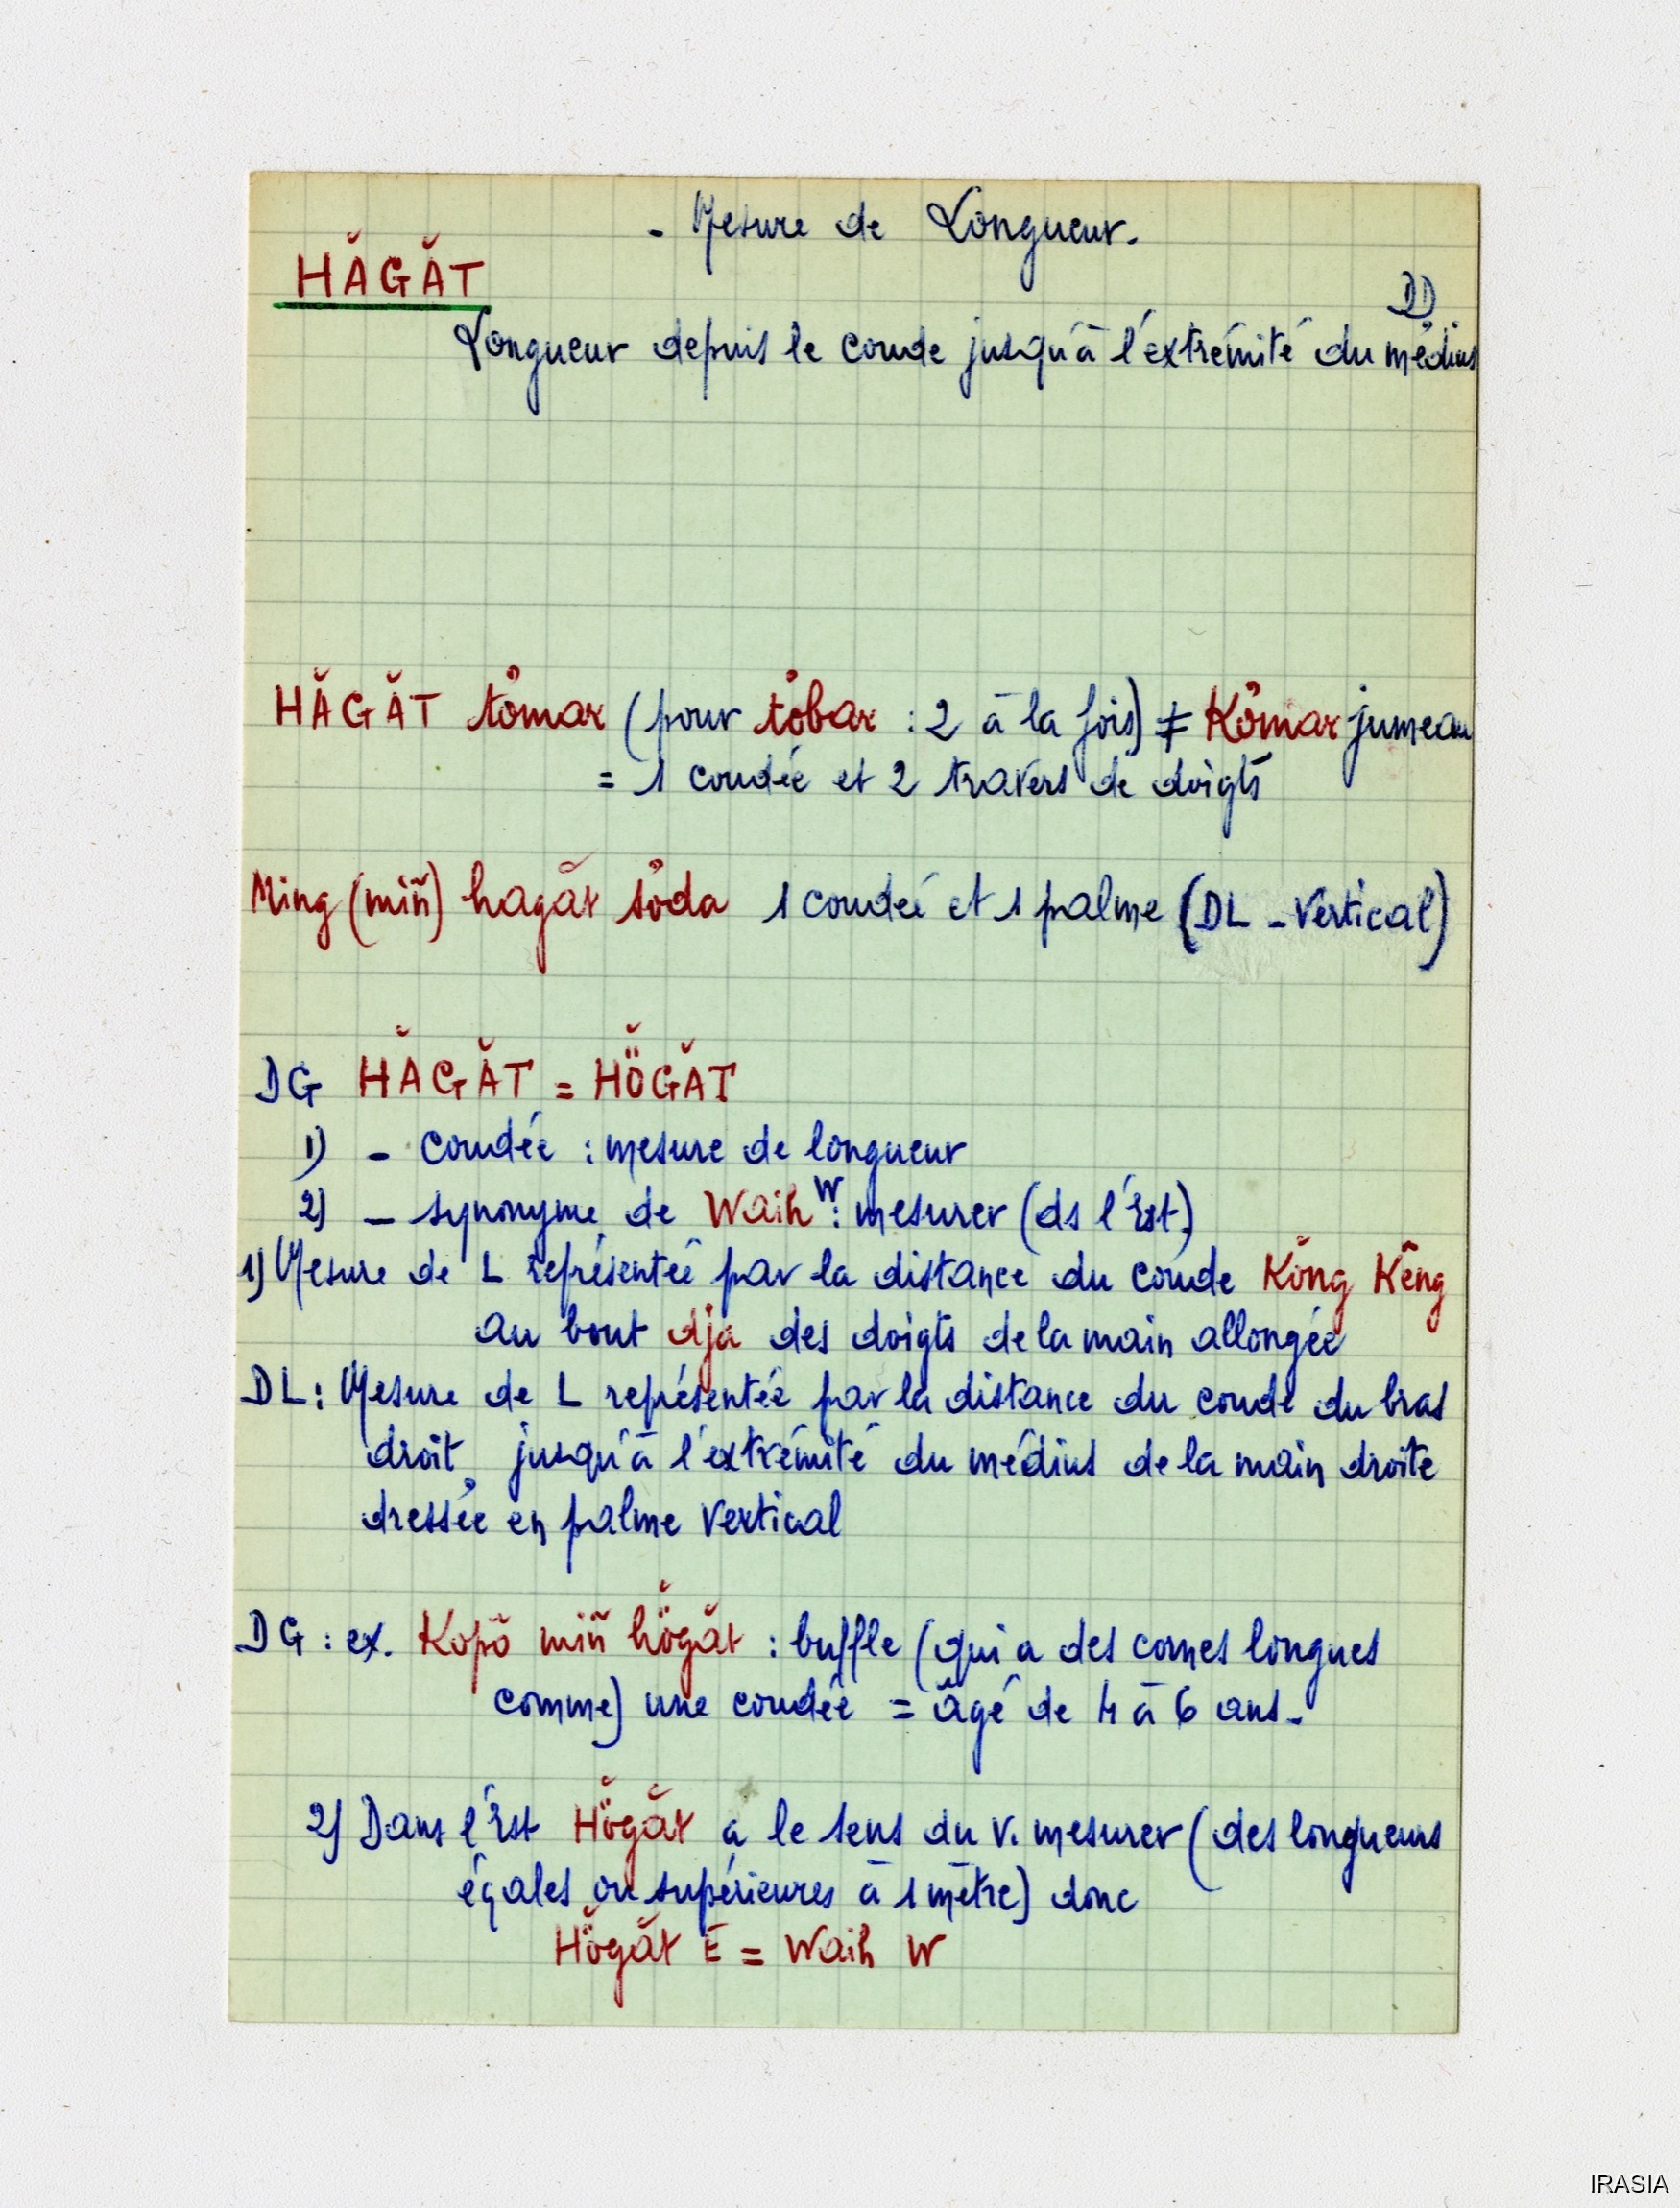 - Mesure de Longueur.
HĂGĂT
DD
Longueur depuis le coude jusqu'à l'extrémité du médius
HĂGĂT tơ̆mar (pour tơ̆bar : 2 à la fois) ≠ Kơ̆mar jumeau
= 1 coudée et 2 travers de doigts
Ming (miñ) hagăt sơ̆da 1 coudée et 1 palme (DL - Vertical)
DG HĂGĂT = HÖ̆GĂT
1) - coudée : mesure de longueur
2) - synonyme de Waih W : mesurer (ds l'Est)
1) Mesure de L représentée par la distance du coude Kŏng Kêng
au bout dja des doigts de la main allongée
DL : Mesure de L représentée par la distance du coude du bras
droit, jusqu'à l'extrémité du médius de la main droite
dressée en palme vertical
DG : ex. Kopô miñ hö̆găt : buffle (qui a des cornes longues
comme) une coudée = âgé de 4 à 6 ans -
2) Dans l'Est Hö̆găt a le sens du v. mesurer (des longueurs
égales ou supérieures à 1 mètre) donc
Hö̆găt E = Waih W
IRASIA